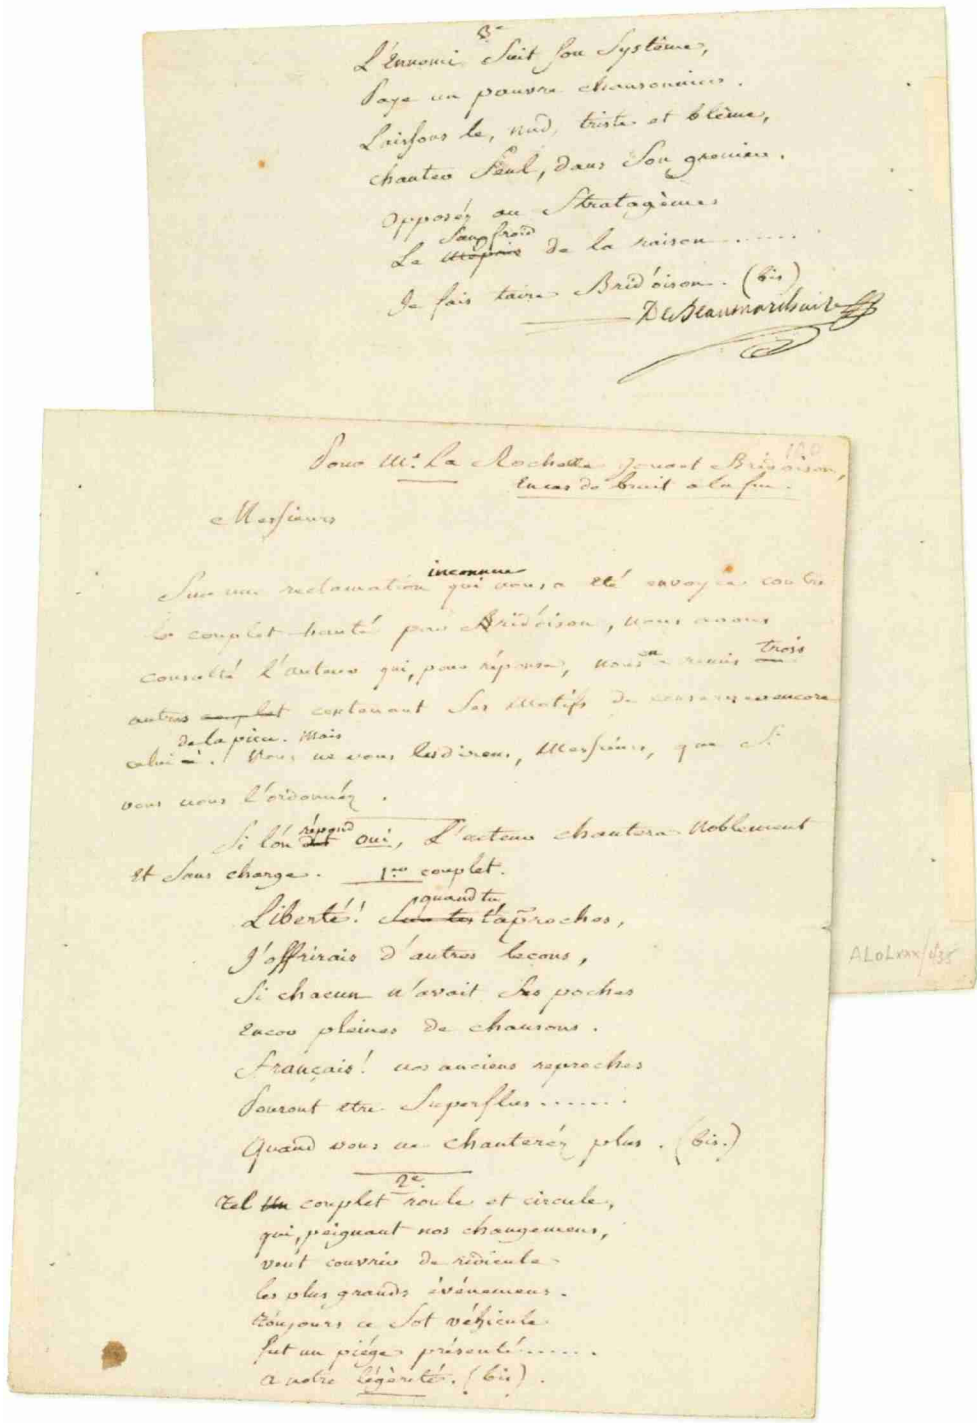 3e
L'Ennemi suit son systême,
Paye un pauvre chansonnier.
Laissons le, nud, triste et blême,
chanter seul, dans son grenier.
opposéz au stratagême
sang froid
Le mépris de la raison ......
Je fais taire Brid'oison. (bis)
De Beaumarchais
120
Pour Mr. La Rochelle jouant Bridoison,
en cas de bruit a la fin.
Messieurs
inconnue
Sur une reclamation qui vous a été envoyée contre
le couplet chanté par Brid'oison, nous avons
en trois
consulté l'auteur qui, pour réponse, nous a remis un
autres couplet contenant ses motifs de conserver encore
de la piece. Mais
celui ci. Nous ne vous les dirons, Messieurs, que si
vous nous l'ordonnéz.
répond
Si l'on dit oui, L'acteur chantera noblement
et sans charge. 1er couplet.
quand tu
Liberté! t'aproches,
J'offrirais d'autres leçons,
Si chacun n'avait ses poches
Encor pleines de chansons.
français! nos anciens reproches
Pouront etre superflus ......
Quand vous ne chanteréz plus. (bis.)
2e.
Tel un couplet roule et circule,
qui, peignant nos changemens,
veut couvrir de ridicule
les plus grands événemens.
toujours ce sot véhicule
fut un piége présenté ......
a notre légèreté. (bis).